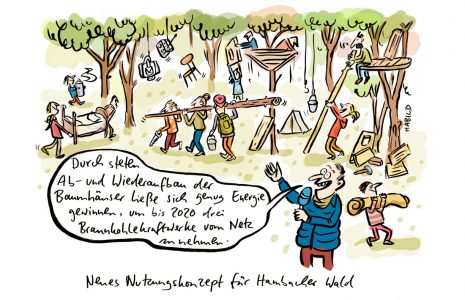 Durch steten
Ab- und Wiederaufbau der
Baumhäuser ließe sich genug Energie
gewinnen, um bis 2020 drei
Braunkohlekraftwerke vom Netz
zu nehmen.
HABILD
Neues Nutzungskonzept für Hambacher Wald